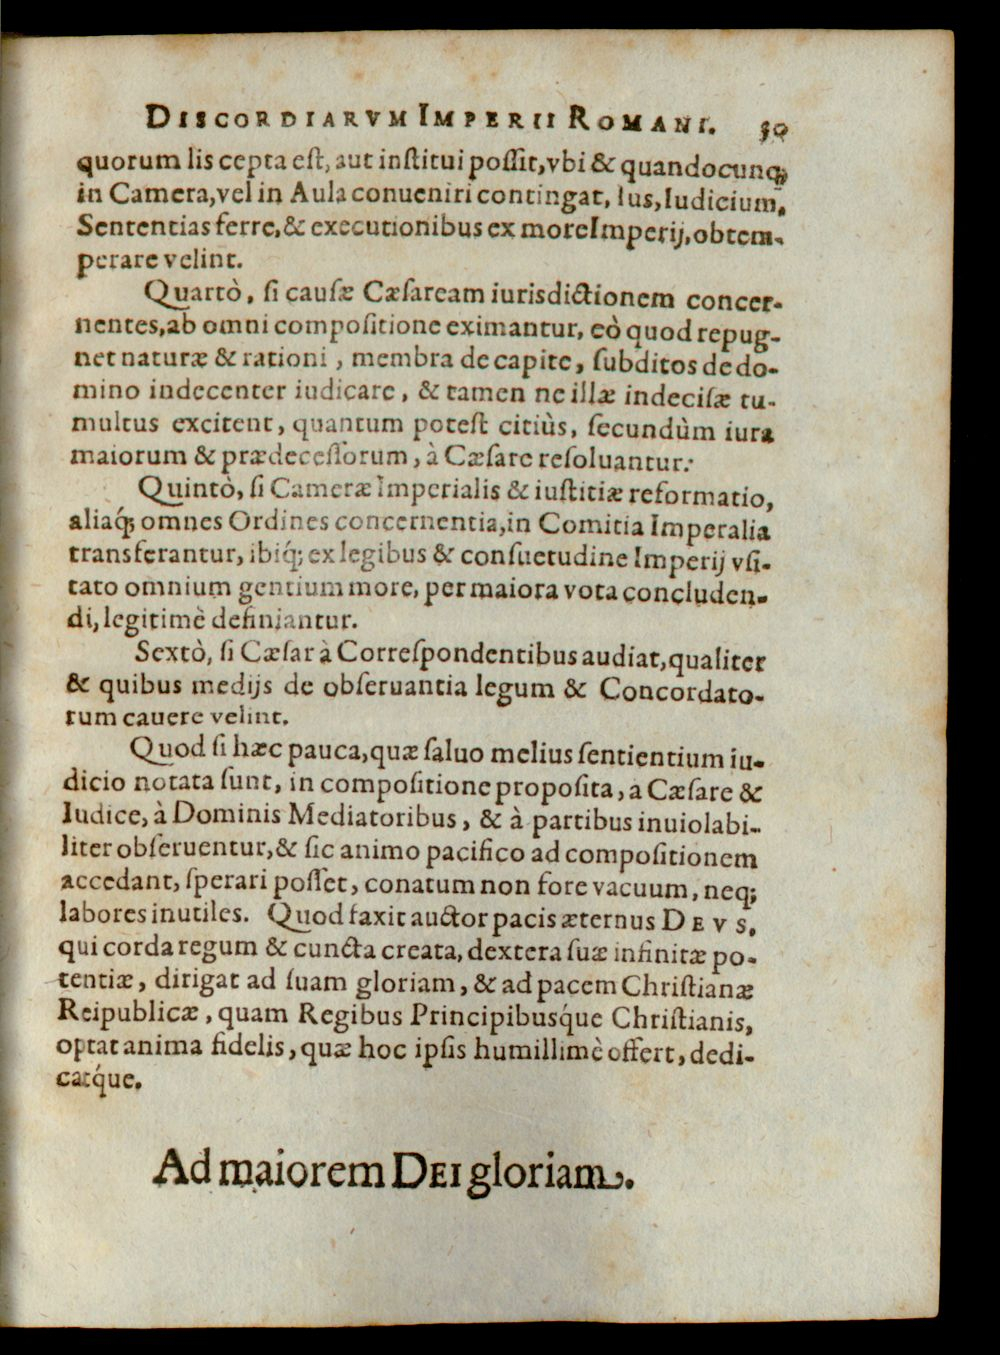 DISCORDIARVM IMPERII ROMANI. 50
quorum lis cepta eſt, aut inſtitui poſſit, vbi & quandocunq;
in Camera, vel in Aula conueniri contingat, Ius, Iudicium,
Sententias ferre, & executionibus ex more Imperij, obtem-
perare velint.
Quartò, ſi cauſæ Cæſaream iurisdictionem concer-
nentes, ab omni compoſitione eximantur, eò quod repug-
net naturæ & rationi, membra de capite, ſubditos de do-
mino indecenter iudicare, & tamen ne illæ indeciſæ tu-
multus excitent, quantum poteſt citiùs, ſecundùm iura
maiorum & prædeceſſorum, à Cæſare reſoluantur.
Quintò, ſi Cameræ Imperialis & iuſtitiæ reformatio,
aliaq́; omnes Ordines concernentia, in Comitia Imperalia
transferantur, ibiq́; ex legibus & conſuetudine Imperij vſi-
tato omnium gentium more, per maiora vota concluden-
di, legitimè definiantur.
Sextò, ſi Cæſar à Correſpondentibus audiat, qualiter
& quibus medijs de obſeruantia legum & Concordato-
rum cauere velint.
Quod ſi hæc pauca, quæ ſaluo melius ſentientium iu-
dicio notata ſunt, in compoſitione propoſita, a Cæſare &
Iudice, à Dominis Mediatoribus, & à partibus inuiolabi-
liter obſeruentur, & ſic animo pacifico ad compoſitionem
accedant, ſperari poſſet, conatum non fore vacuum, neq;
labores inutiles. Quod faxit auctor pacis æternus DEVS,
qui corda regum & cuncta creata, dextera ſuæ infinitæ po-
tentiæ, dirigat ad ſuam gloriam, & ad pacem Chriſtianæ
Reipublicæ, quam Regibus Principibusq́ue Chriſtianis,
optat anima fidelis, quæ hoc ipſis humillimè offert, dedi-
catq́ue.
Ad maiorem DEI gloriam.